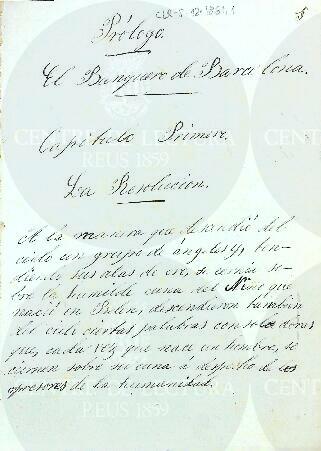 CLR-S 12-1861 1
5
Prólogo.
El Banquero de Barcelona.
Capitulo Primero.
La Resolucion.
A la manera que descendió del
cielo un grupo de ángeles y, ten-
diendo sus alas de oro, se cernió so-
bre la humilde cuna del Niño que
nació en Belen, descendieron tambien
del cielo ciertas palabras consoladoras
que, cada vez que nace un hombre, se
ciernen sobre su cuna a despecho de los
opresores de la humanidad.
CENTRE DE LECTURA
REUS 1859